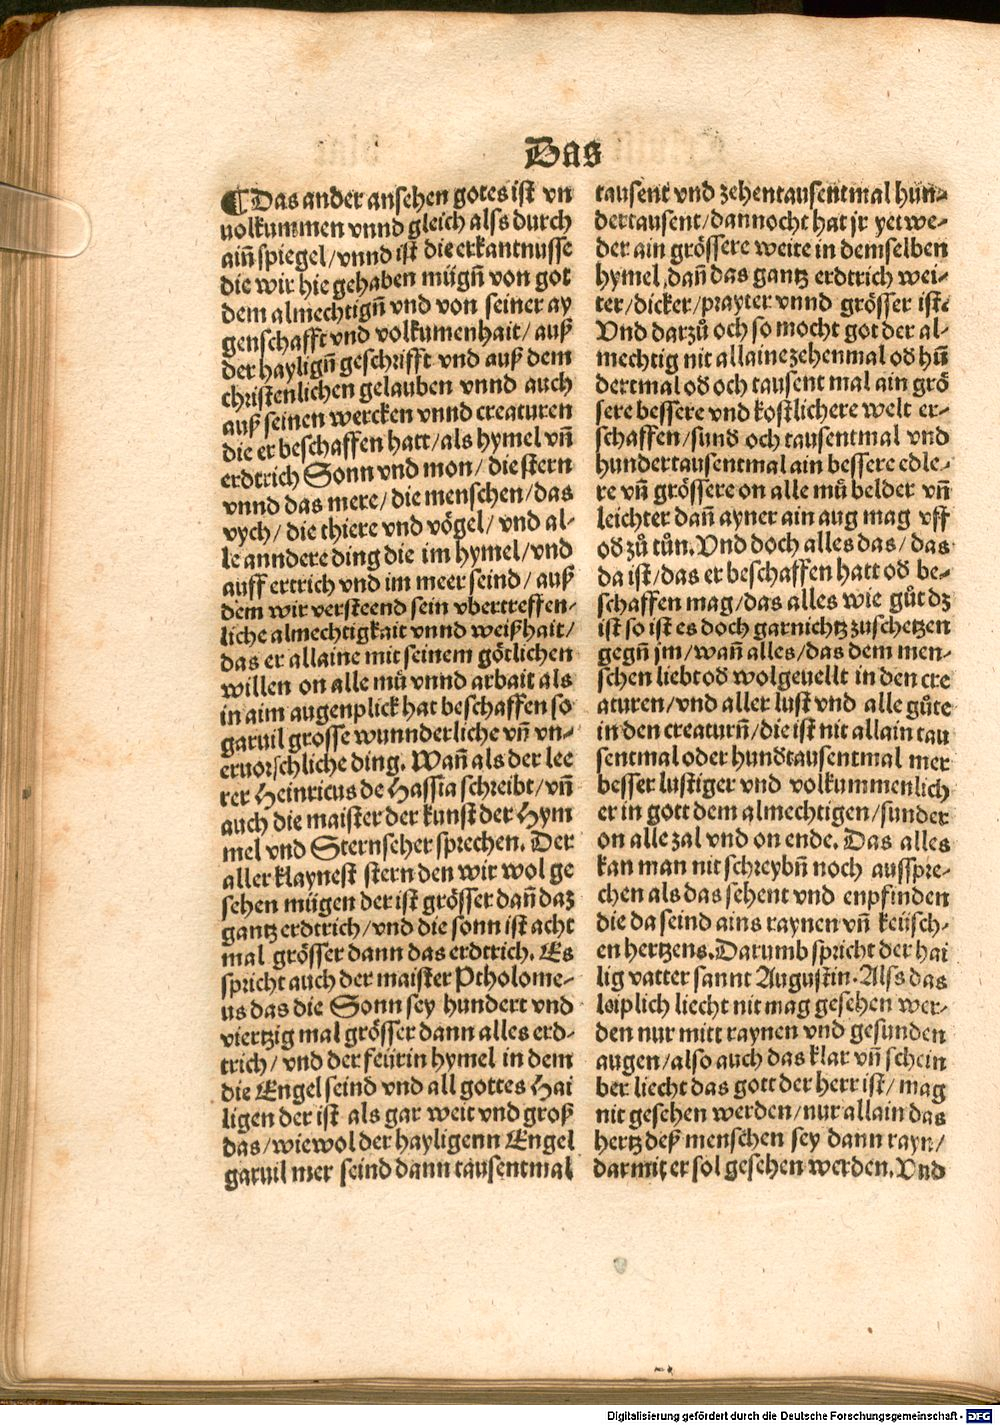 Das
¶ Das ander ansehen gotes ist vn
uolkummen vnnd gleich alss durch
ain̄ spiegel/vnnd ist die erkantnusse
die wir hie gehaben mügn̄ von got
dem almechtign̄ vnd von seiner ay
genschafft vnd volkumenhait/auß
der haylign̄ geschrifft vnd auß dem
christenlichen gelauben vnnd auch
auß seinen wercken vnnd creaturen
die er beschaffen hatt/als hymel vn̄
erdtrich Sonn vnd mon/die stern
vnnd das mere/die menschen/das
vych/die thiere vnd vögel/vnd al-
le anndere ding die im hymel/vnd
auff ertrich vnd im meer seind/auß
dem wir versteend sein vbertreffen-
liche almechtigkait vnnd weißhait/
das er allaine mit seinem götlichen
willen on alle mů vnnd arbait als
in aim augenplick hat beschaffen so
garuil grosse wunnderliche vn̄ vn-
eruorschliche ding. Wan̄ als der lee
rer Heinricus de Hassia schreibt/vn̄
auch die maister der kunst der Hym
mel vnd Sternseher sprechen. Der
aller klaynest stern den wir wol ge
sehen mügen der ist grösser dan̄ daz
gantz erdtrich/vnd die sonn ist acht
mal grösser dann das erdtrich. Es
spricht auch der maister Ptholome-
us das die Sonn sey hundert vnd
viertzig mal grösser dann alles erd-
trich/vnd der feürin hymel in dem
die Engel seind vnd all gottes Hai
ligen der ist als gar weit vnd groß
das/wiewol der hayligenn Engel
garuil mer seind dann tausentmal
tausent vnd zehentausentmal hun-
dertausent/dannocht hat jr yet we-
der ain grössere weite in demselben
hymel, dan̄ das gantz erdtrich wei-
ter/dicker/prayter vnnd grösser ist.
Vnd darzů och so mocht got der al-
mechtig nit allaine zehenmal od hū
dertmal od och tausent mal ain grö
sere bessere vnd kostlichere welt er-
schaffen/sund och tausentmal vnd
hundertausentmal ain bessere edle-
re vn̄ grössere on alle mů belder vn̄
leichter dan̄ ayner ain aug mag vff
od zů tůn. Vnd doch alles das/das
da ist/das er beschaffen hatt od be-
schaffen mag/das alles wie gůt dz
ist so ist es doch garnichtz zuschetzen
gegn̄ jm/wan̄ alles/das dem men-
schen liebt od wolgeuellt in den cre
aturen/vnd aller lust vnd alle gůte
in den creaturn̄/die ist nit allain tau
sentmal oder hundtausentmal mer
besser lustiger vnd volkummenlich
er in gott dem almechtigen/sunder
on alle zal vnd on ende. Das alles
kan man nit schreybn̄ noch ausspre-
chen als das sehent vnd enpfinden
die da seind ains raynen vn̄ keüsch-
en hertzens. Darumb spricht der hai
lig vatter sannt Augustin. Alss das
leiplich liecht nit mag gesehen wer-
den nur mitt raynen vnd gesunden
augen/also auch das klar vn̄ schein
ber liecht das gott der herr ist/mag
nit gesehen werden/nur allain das
hertz deß menschen sey dann rayn/
darmit er sol gesehen werden. Vnd
Digitalisierung gefördert durch die Deutsche Forschungsgemeinschaft - DFG